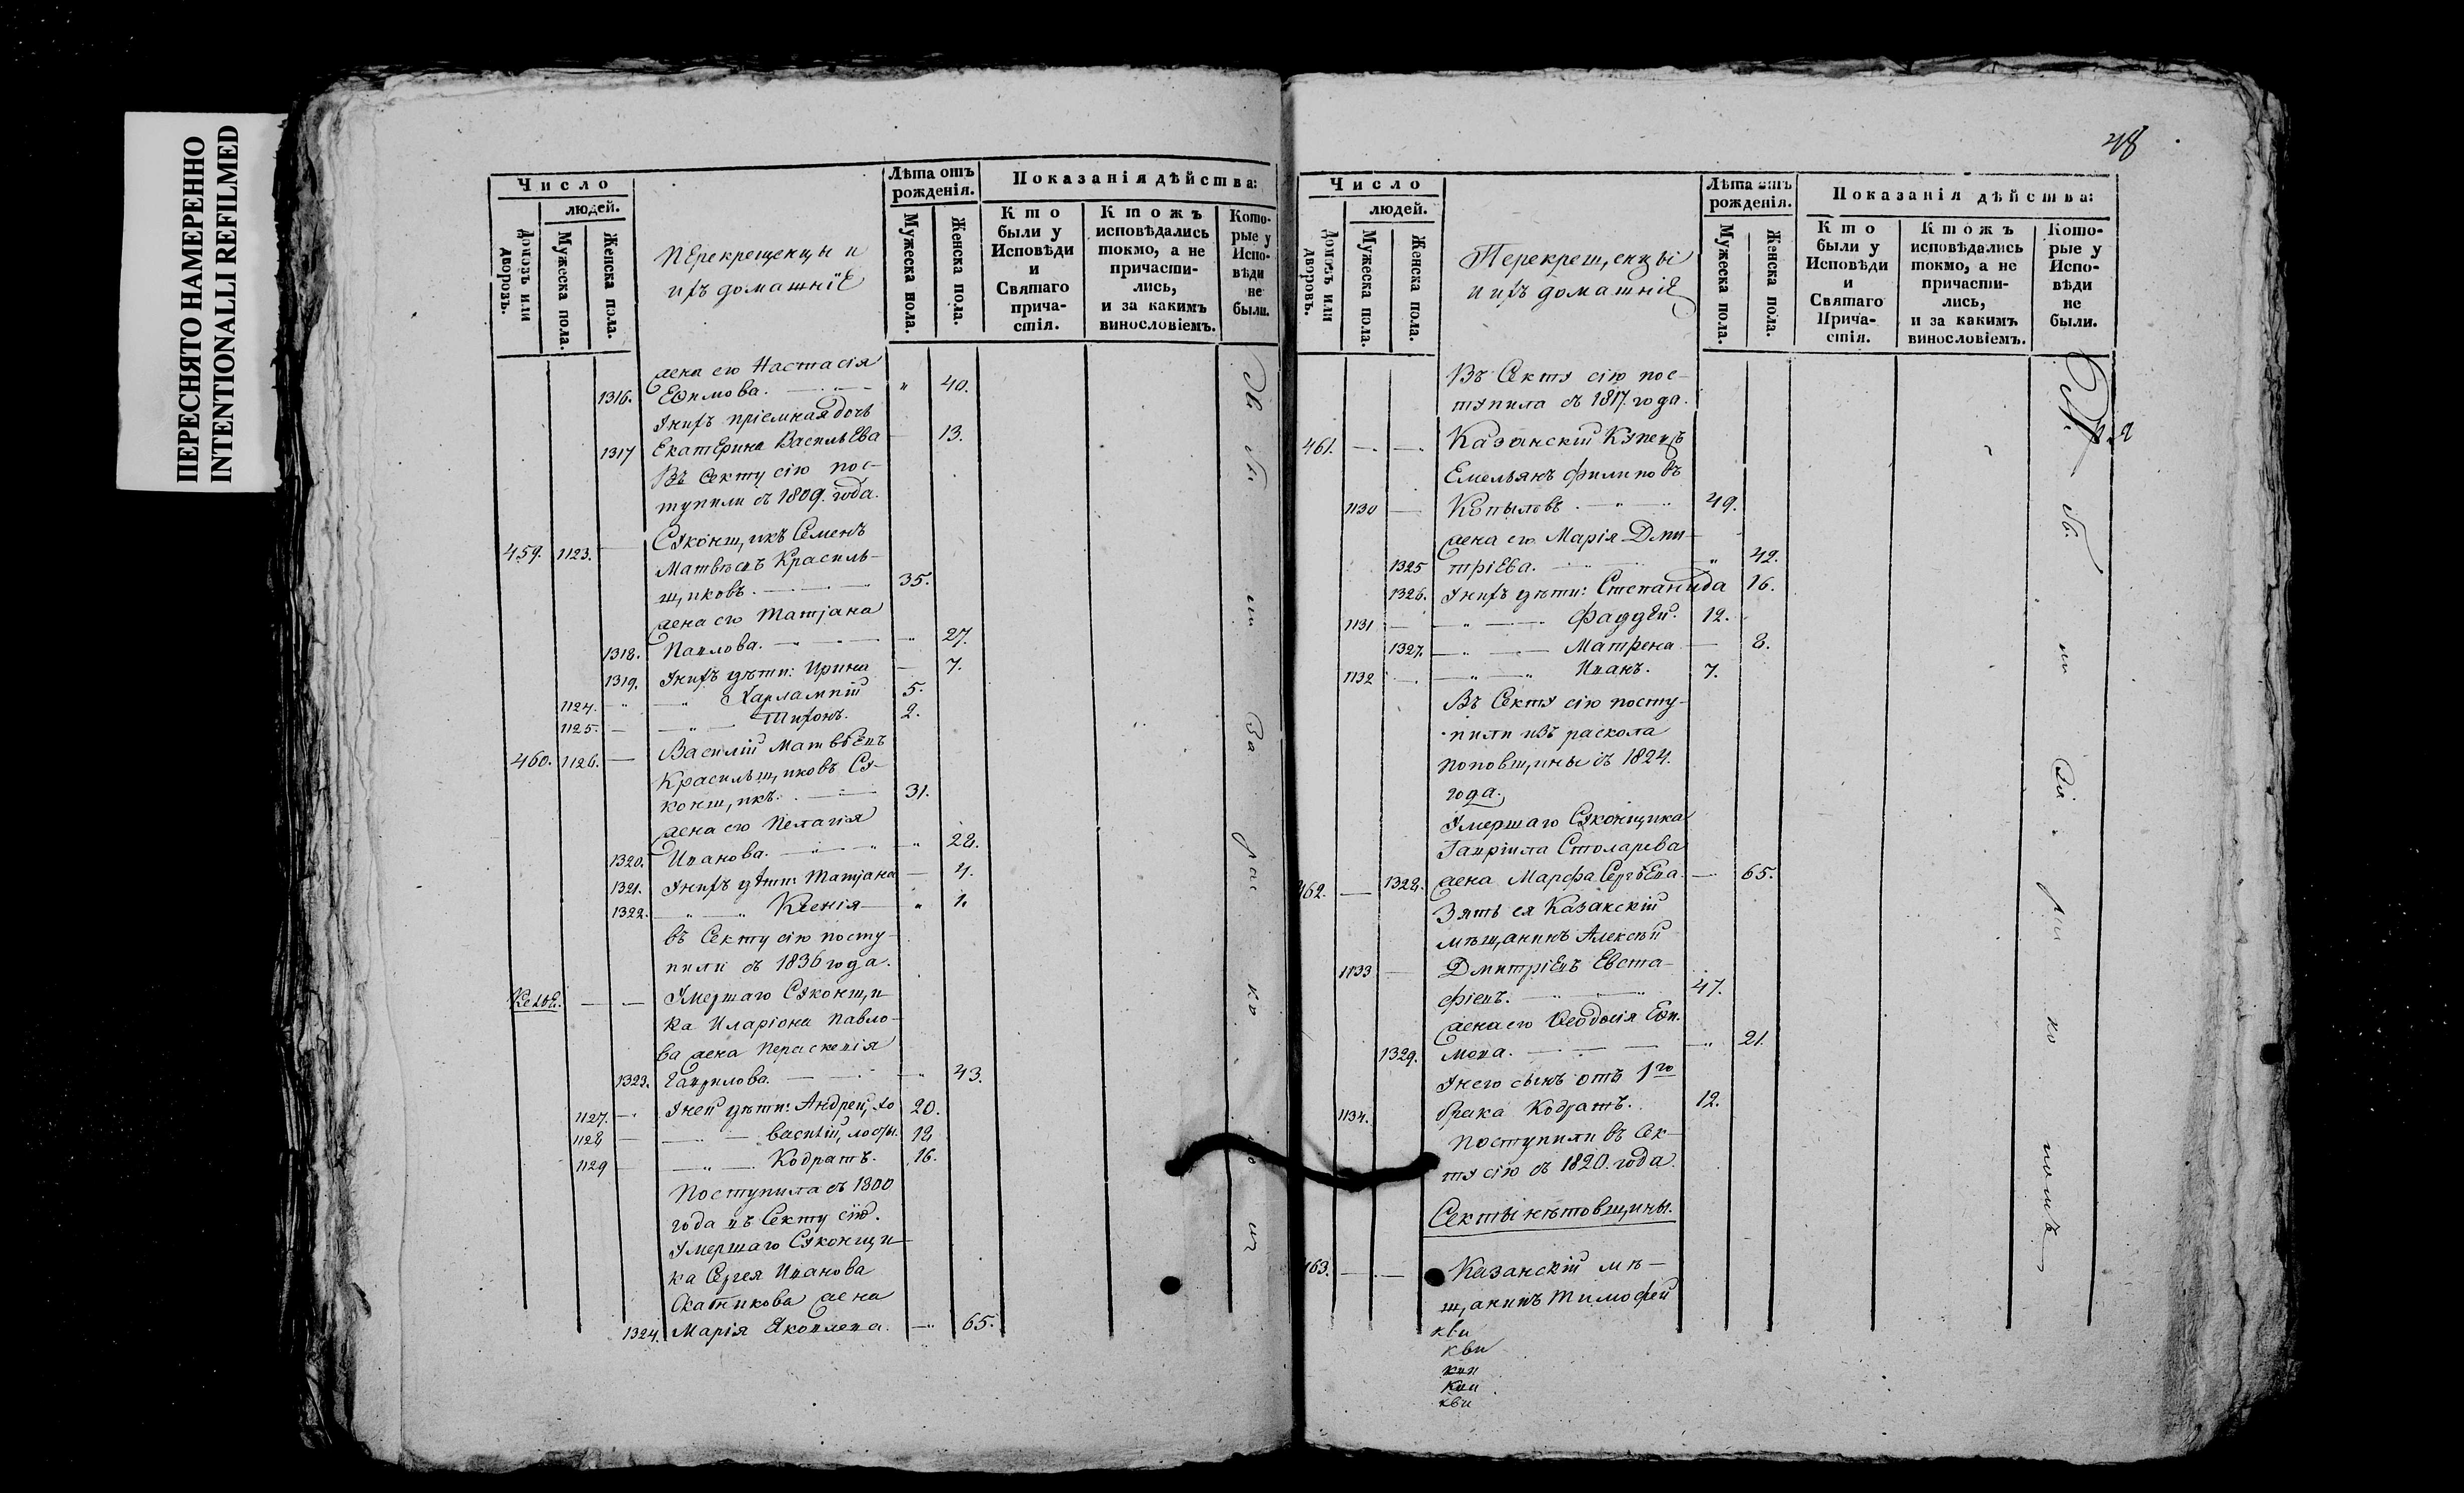 ПЕРЕСНЯТО НАМЕРЕННО
INTENTIONALLI REFILMED
Число
людей.
Домовъ или дворовъ.
Мужеска пола.
Женска пола.
Перекрещенцы и
ихъ домашніе
Лѣта отъ
рожденія.
Мужеска пола.
Женска пола.
Показанія дѣйства:
Кто
были у
Исповѣди
и
Святаго
прича-
стія.
Ктожъ
исповѣдались
токмо, а не
причасти-
лись,
и за какимъ
винословіемъ.
Кото-
рые у
Испо-
вѣди
не
были.
жена его Настасія
1316. Ефимова. " 40.
У нихъ пріемная дочь
1317 Екатерина Васильева 13.
Въ Секту сію пос-
тупили съ 1809. года.
Суконщикъ Семенъ
459. 1123. Матвѣевъ Красиль-
щиковъ. 35.
жена его Татіана
1318. Павлова. 27.
1319. У нихъ дѣти: Ирина 7.
1124. " Харлампій 5.
1125. " Тихонъ. 2.
460. 1126. Василій Матвѣевъ
Красильщиковъ Су-
конщикъ. 31.
жена его Пелагія
1320. Иванова. " 28.
1321. У нихъ дѣти: Татіана 4.
1322. " Ксенія " 1.
въ Секту сію посту-
пили съ 1836 года.
Келья. Умершаго Суконщи-
ка Иларіона Павло-
ва жена Параскевія
1323. Гаврилова. 43.
1127. У ней дѣти: Андрей, хо 20.
1128 Василій, холос. 18
1129 " Кодратъ. 16.
Поступила съ 1800
года въ Секту сію.
Умершаго Суконщи-
ка Сергея Иванова
Скатникова жена
1324. Марія Яковлева. 65.
За рас ко
48
Число
людей.
Домовъ или дворовъ.
Мужеска пола.
Женска пола.
Перекрещенцы
и ихъ домашніе
Лѣта отъ
рожденія.
Мужеска пола.
Женска пола.
Показанія дѣйства:
Кто
были у
Исповѣди
и
Святаго
Прича-
стія.
Ктожъ
исповѣдались
токмо, а не
причасти-
лись,
и за какимъ
винословіемъ.
Кото-
рые у
Испо-
вѣди
не
были.
Въ Секту сію пос-
тупила съ 1817. года.
461. Казанскій Купецъ
Емельянъ Филиповъ
1130 Копыловъ. 49.
жена его Марія Дми-
1325 тріева. " 42.
1326. У нихъ дѣти: Степанида 16.
1131 " Фаддей. 12.
1327. " Матрена 8.
1132 " Иванъ. 7.
Въ Секту сію посту-
пили изъ раскола
поповщины съ 1824.
года.
Умершаго Суконщика
Гаврiила Столарева
462. 1328. жена Марфа Сергѣева. 65.
Зять ея Казанскій
мѣщанинъ Алексѣй
1133 Дмитріевъ Евста-
фіевъ. 47.
жена его Ѳеодосія Ефи-
1329. мова. " 21.
У него сынъ отъ 1го
1134. брака Кодратъ. 12.
Поступили въ Сек-
ту сію съ 1820. года.
Секты нѣтовщины.
463. Казанскій мѣ-
щанинъ Тимофей
кви
кви
кви
кви
кви